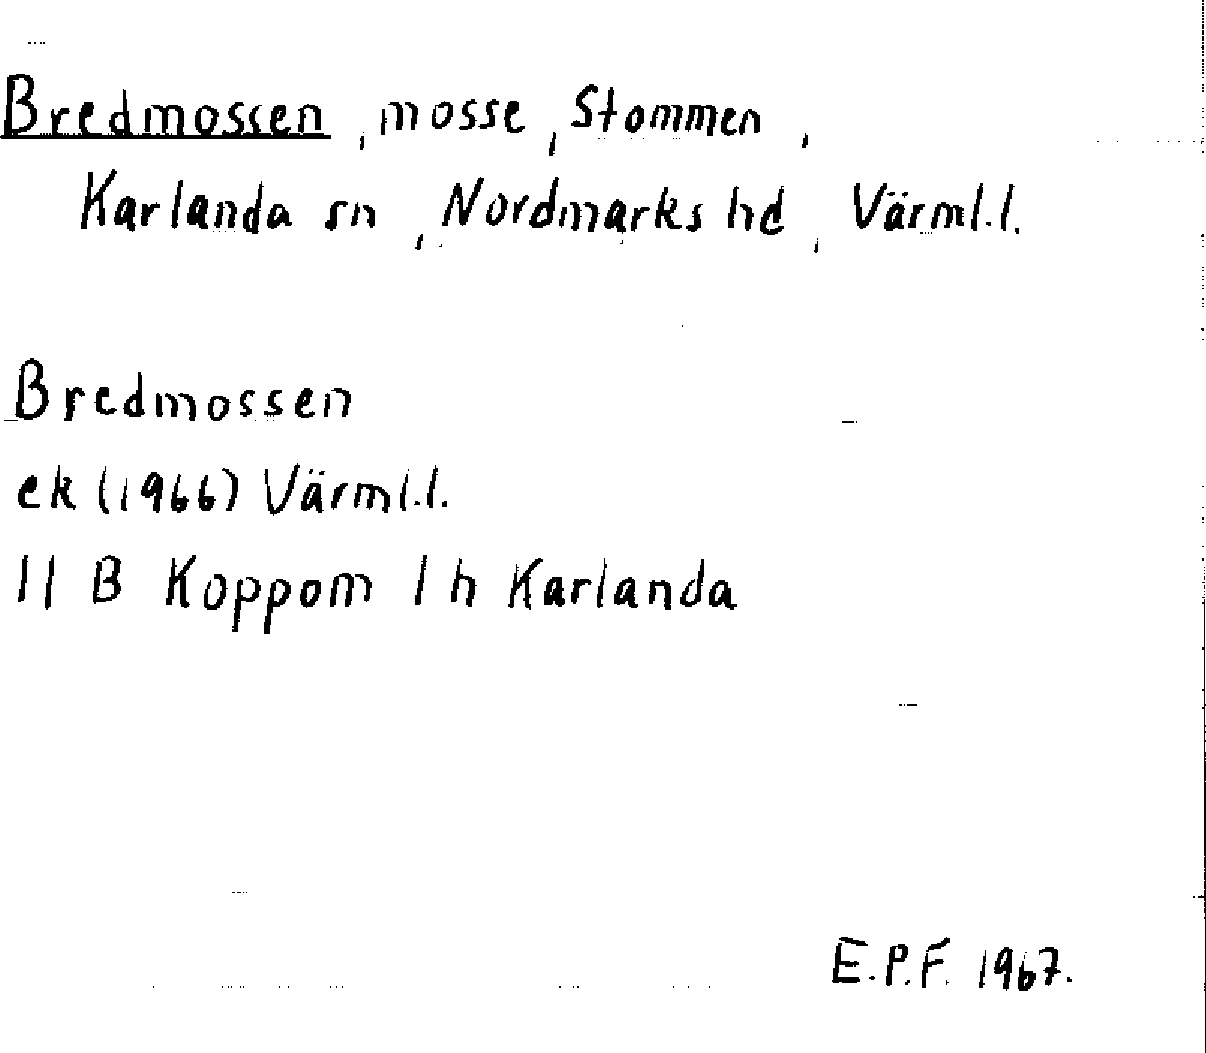 Bredmossen, mosse, Stommen,
Karlanda sn, Nordmarks hd, Värml.l.
Bredmossen
ek (1966) Värml.l.
11 B Koppom 1 h Karlanda
E.P.F. 1967.